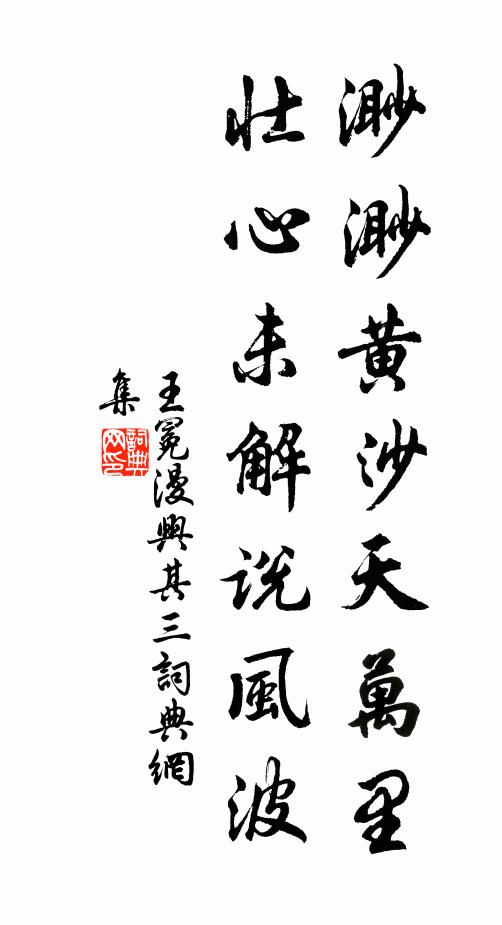 渺渺黄沙天萬里
壯心未解説風波
王冕漫興其三詞典網
集
詞典
网印